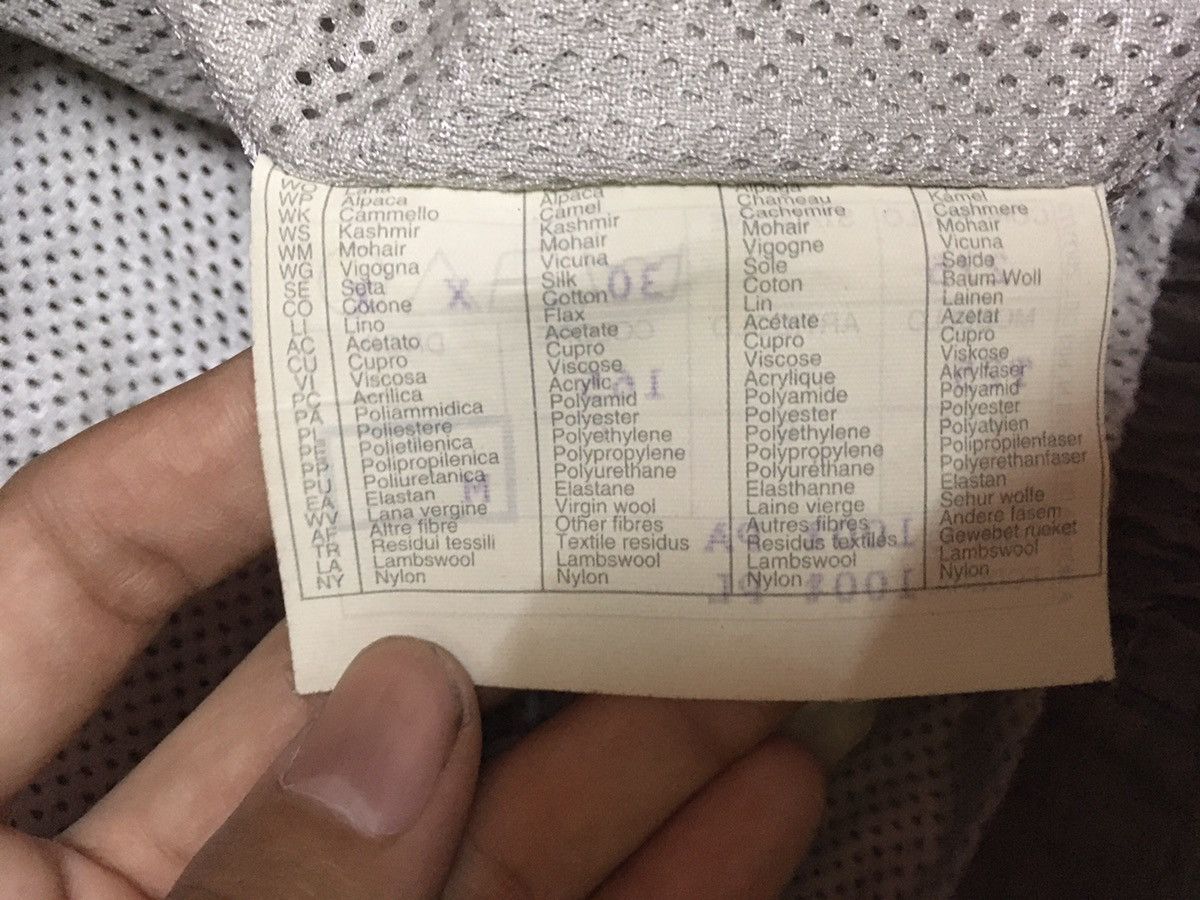 WO Lana
WP Alpaca Alpaca Alpaga
WK Cammello Camel Chameau Kamel
WS Kashmir Kashmir Cachemire Cashmere
WM Mohair Mohair Mohair Mohair
WG Vigogna Vicuna Vigogne Vicuna
SE Seta Silk Sole Seide
CO Cotone Cotton Coton Baum Woll
LI Lino Flax Lin Lainen
AC Acetato Acetate Acétate Azetat
CU Cupro Cupro Cupro Cupro
VI Viscosa Viscose Viscose Viskose
PC Acrilica Acrylic Acrylique Akrylfaser
PA Poliammidica Polyamid Polyamide Polyamid
PL Poliestere Polyester Polyester Polyester
PE Polietilenica Polyethylene Polyethylene Polyatyien
PP Polipropilenica Polypropylene Polypropylene Polipropilenfaser
PU Poliuretanica Polyurethane Polyuréthane Polyerethanfaser
EA Elastan Elastane Elasthanne Elastan
WV Lana vergine Virgin wool Laine vierge Sehur wolfe
AF Altre fibre Other fibres Autres fibres Andere fasern
TR Residui tessili Textile residus Résidus textiles Gewebet rueket
LA Lambswool Lambswool Lambswool Lambswool
NY Nylon Nylon Nylon Nylon